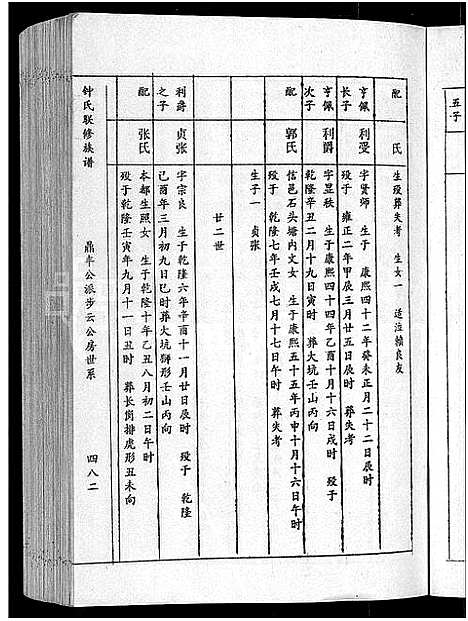 五子
配 氏 生殁葬失考 生女一 适泣赣良友
亨佩长子 利受 字贤师 生于 康熙四十二年癸未正月二十二日辰时
殁于 雍正二年甲辰三月廿五日辰时 葬失考
亨佩次子 利爵 字显秩 生于康熙四十四年乙酉十月十六日戌时 殁于
乾隆辛丑二月十九日寅时 葬火坑壬山丙向
配 郭氏 信邑石头塘内文女 生于康熙五十五年丙申十月十六日午时
殁于乾隆七年壬戌七月十七日午时 葬失考
生子一 贞张
廿二世
利爵之子 贞张 字宗良 生于乾隆六年辛酉十一月廿日辰时 殁于 乾隆
己酉年三月初九日巳时葬火坑狮形壬山丙向
配 张氏 本都生照女 生于乾隆十年乙丑八月初二日午时
殁于乾隆壬寅年九月十一日丑时 葬长岗排虎形丑未向
钟氏联修族谱 鼎丰公派步云公房世系 四八二